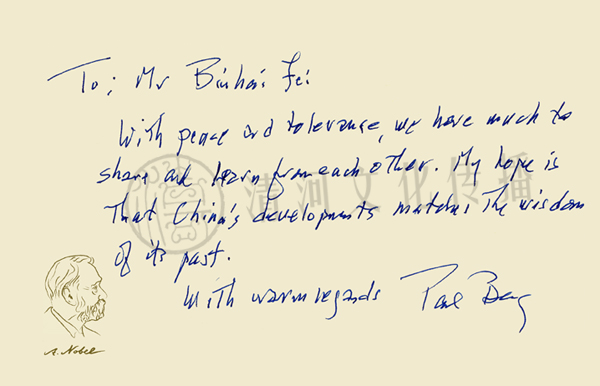 To: Mr Binhai Fei
With peace and tolerance, we have much to
share and learn from each other. My hope is
That China's developments matches The wisdom
of its past.
With warm regards Paul Berg
清洲文化传播
A. Nobel